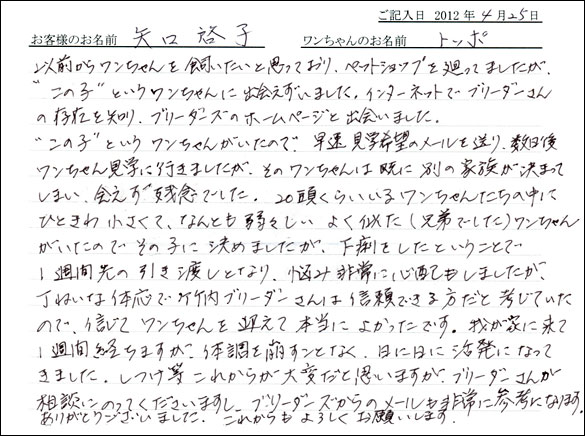 ご記入日 2012年4月25日
お客様のお名前 矢口 啓子 ワンちゃんのお名前 トッポ
以前からワンちゃんを飼いたいと思っており、ペットショップを廻ってましたが、
"この子"というワンちゃんに出会えずいました。インターネットでブリーダーさん
の存在を知り、ブリーダーズのホームページと出会いました。
"この子"というワンちゃんがいたので、早速見学希望のメールを送り、数日後
ワンちゃん見学に行きましたが、そのワンちゃんは既に別の家族が決まって
しまい、会えず残念でした。20頭くらいいるワンちゃんたちの中に
ひときわ小さくて、なんとも弱々しい よく似た(兄弟でした)ワンちゃん
がいたのでその子に決めましたが、下痢をしたということで
1週間先の引き渡しとなり、悩み非常に心配もしましたが、
丁ねいな体応で竹内ブリーダーさんは信頼できる方だと考じていた
ので、信じてワンちゃんを迎えて本当によかったです。我が家に来て
1週間経ちますが、体調を崩すことなく、日に日に活発になって
きました。しつけ等これからが大変だと思いますが、ブリーダーさんが
相談にのってくださいますし、ブリーダーズからのメールも非常に参考になります。
ありがとうございました。これからもよろしくお願いします。